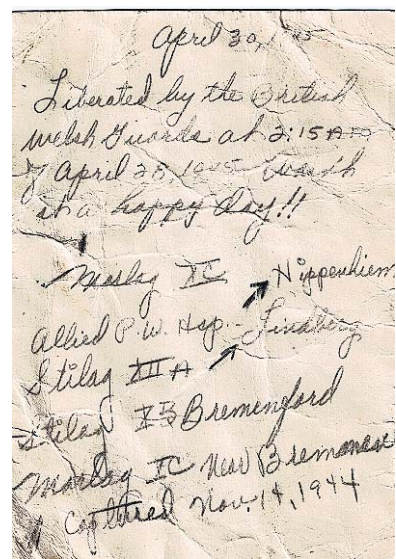 April 30, 1945
Liberated by the British
Welsh Guards at 2:15 A.M.
of April 28, 1945 Wasn't
it a happy day!!
Marlag XC Nippenhiem
Allied P.W. Hsp. Lindberg
Stilag XII A
Stilag XB Bremenford
Marlag XC Near Bremanase
Captured Nov. 14, 1944